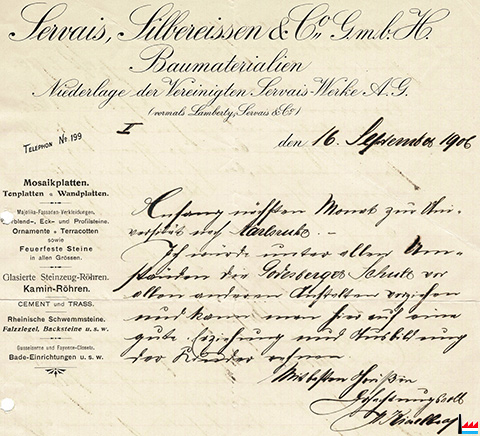 Servais, Silbereissen & Co. G.m.b.H.
Baumaterialien
Niederlage der Vereinigten Servais-Werke A.G.
(vormals Lamberty, Servais & Co.)
TELEPHON No. 199
I
den 16. September 1906
Mosaikplatten.
Tonplatten • Wandplatten.
Majolika-Fassaden-Verkleidungen.
Verblend-, Eck- und Profilsteine.
Ornamente • Terracotten
sowie
Feuerfeste Steine
in allen Grössen.
Glasierte Steinzeug-Röhren.
Kamin-Röhren.
CEMENT und TRASS.
Rheinische Schwemmsteine.
Falzziegel, Backsteine u. s. w.
Gusseiserne und Fayence-Closets.
Bade-Einrichtungen u. s. w.
Anfang nächsten Monat zur Uni-
versität nach Karlsruhe. –
Ich würde unter allen Um-
ständen die Schule vor
allen anderen Anstalten vorziehen
und kann man hier auf eine
gute Erziehung und Ausbildung
der Kinder rechnen.
Mit besten Grüßen
Hochachtungsvoll